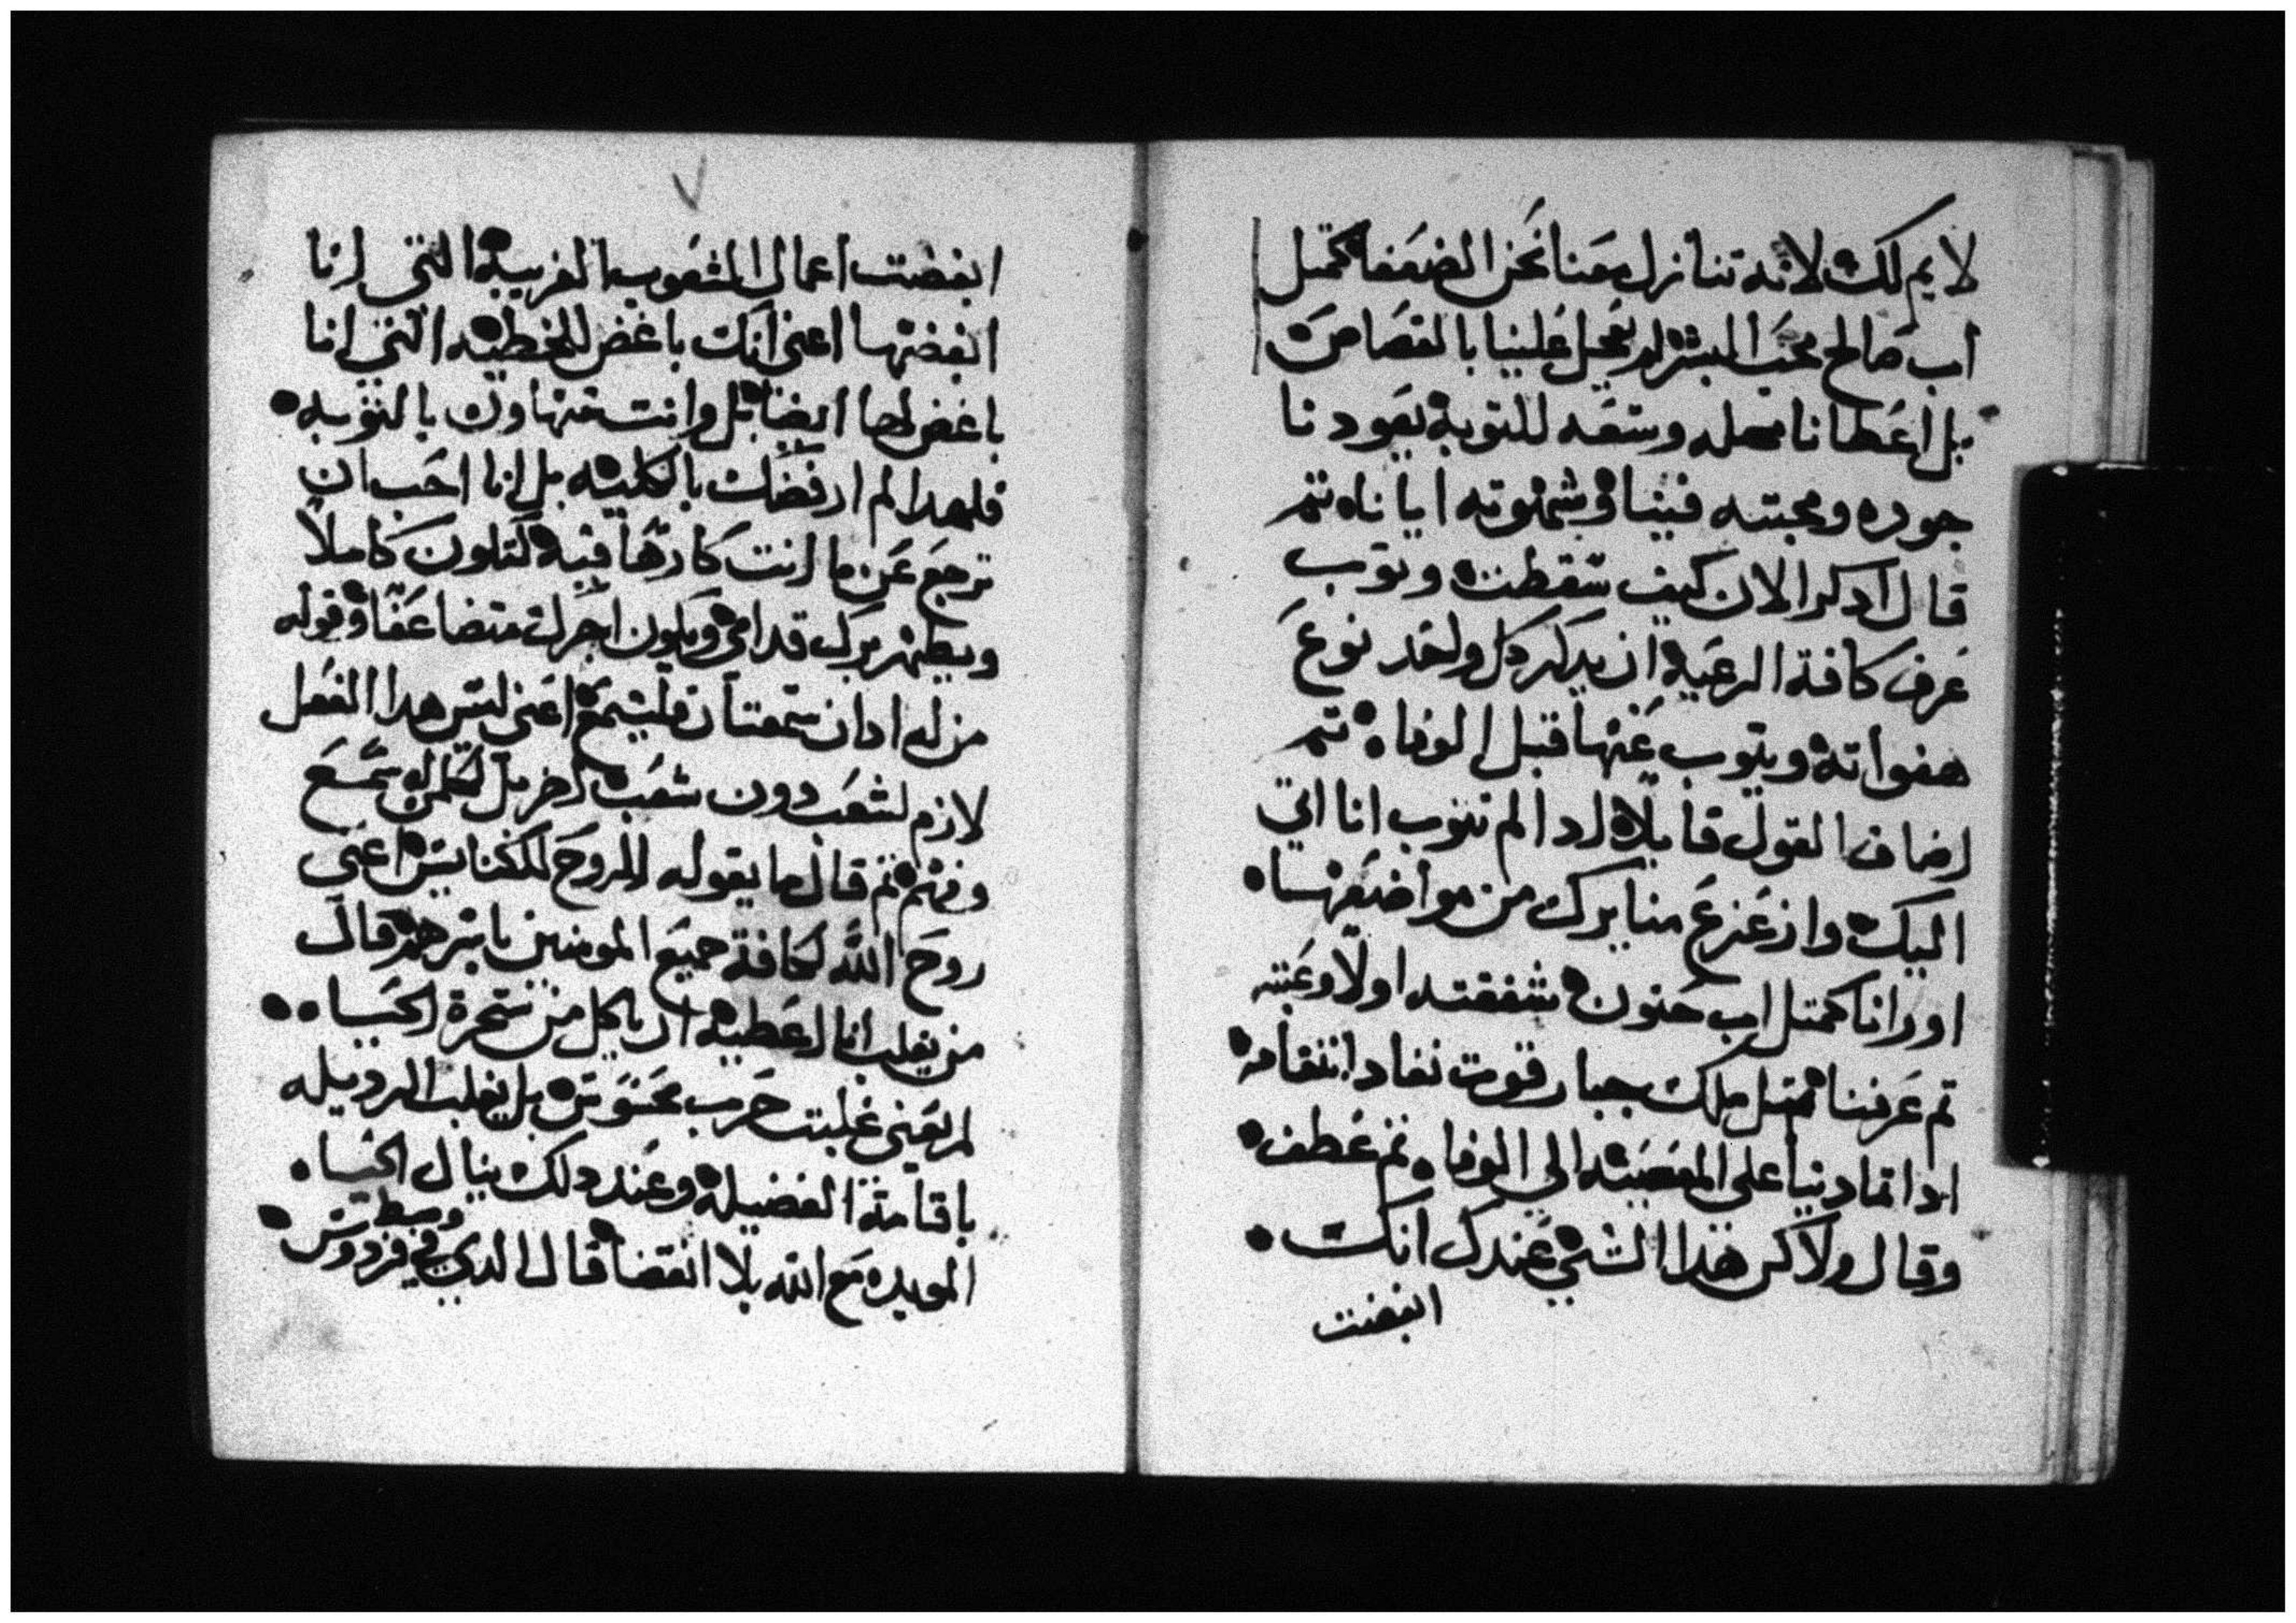 لايم لك لانه تنازل معنا نحن الضعفا كمتل
اب صالح محب البشر لم يعجل علينا بالقصاص
بل اعطانا مهله وسعه للتوبة يعودنا
جوده ومحبته فينا وشمنوته ايانا تم
قال ادكر الان كيف سقطت وتوب
عرف كافة الرعيه ان يدكر كل واحد نوع
هفواته ويتوب عنها قبل الوفاه تم
اضاف القول قايلا ادا لم تتوب انا اتي
اليك وازعزع منايرك من مواضعها
اورانا كمتل اب حنون شفقته اولا وعتبه
تم عرفنا متل ملك جبار قوت نفاد انتقامه
ادا تمادينا على المعصيه الي الوفاه تم عطف
وقال ولاكن هدا الشي عندك انك
ابغضت
٧
ابغضت اعمال الشعوب الغريبه التي انا
ابغضتها اعني انك باغض للخطيه التي انا
باغض لها ايضا بل وانت متهاون بالتوبه
فلهدا لم ارفضك بالكليه بل انا احب ان
ترجع عن ما انت كارها فيه لتكون كاملا
ويطهر برك قدامي ويكون اجرك متضاعفا وقوله
من له ادان سمعتان فليسمع اعني ليس هدا الفعل
لازم لشعب دون شعب اخر بل لكلمن سمع
وفهم تم قال ما يقوله الروح للكنايس اعني
روح الله لكافة جميع المومنين باسرهم قال
من يغلب انا اعطيه ان ياكل من شجرة الحياه
لم يعني غلبت حرب محسوس بل يغلب الرديله
باقامة الفضيله وعند دلك ينال الحياه
الموبده مع الله بلا انقضا قال الدي في وسط فردوس